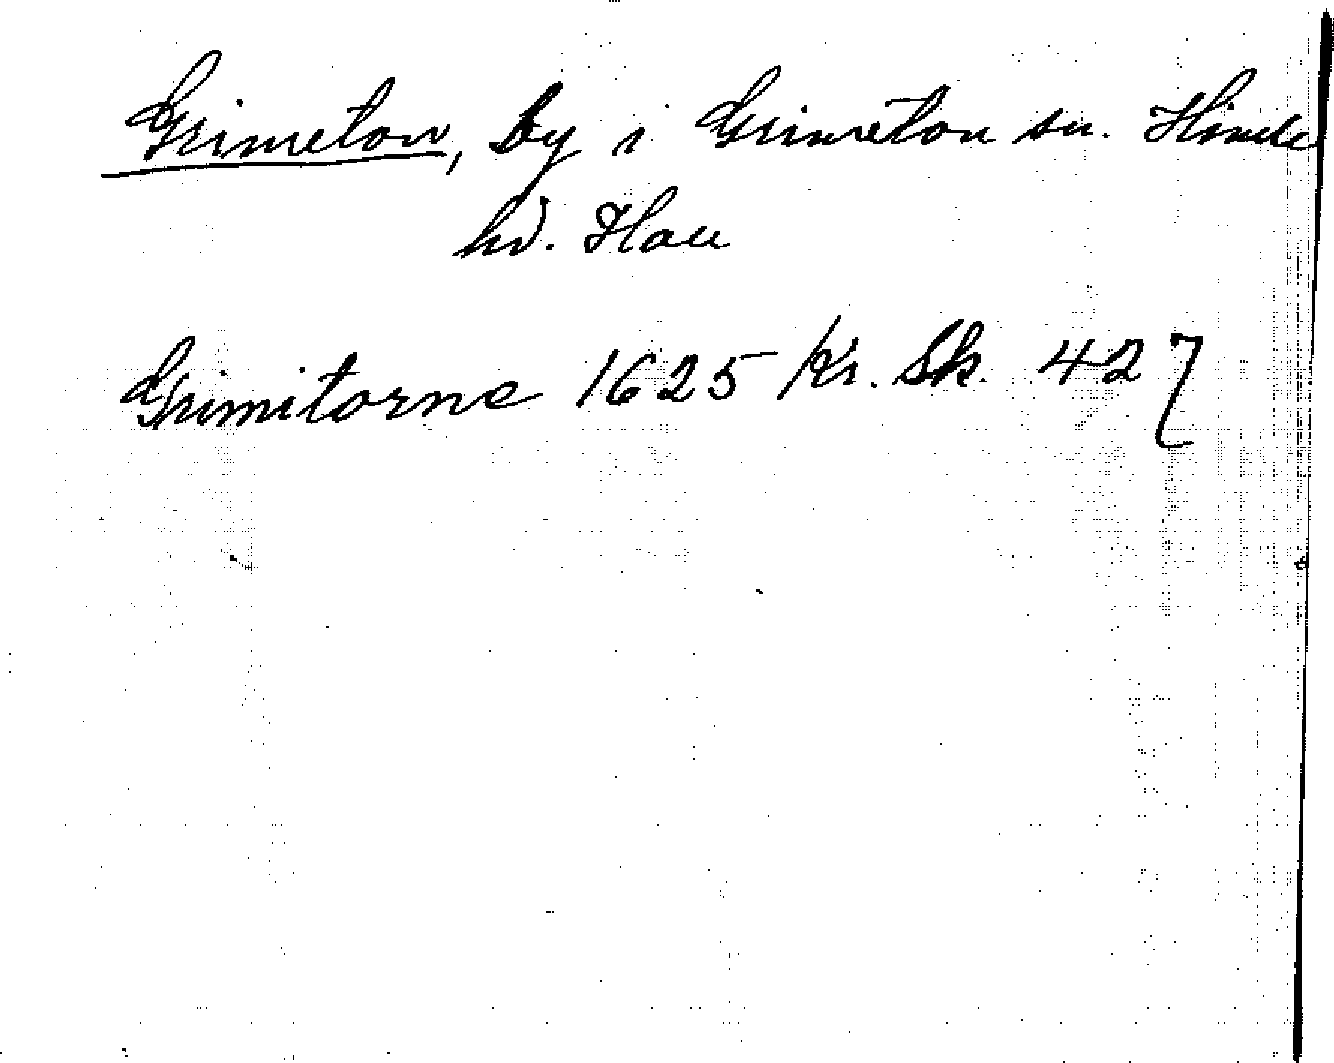 Grimeton, by i Grimeton sn. Himle
hd. Hall
Grimitorne 1625 Kr. Sk. 427